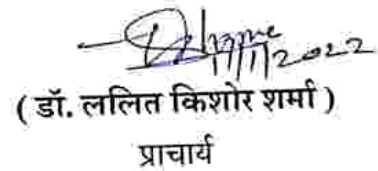 11/1/2022
( डॉ. ललित किशोर शर्मा )
प्राचार्य